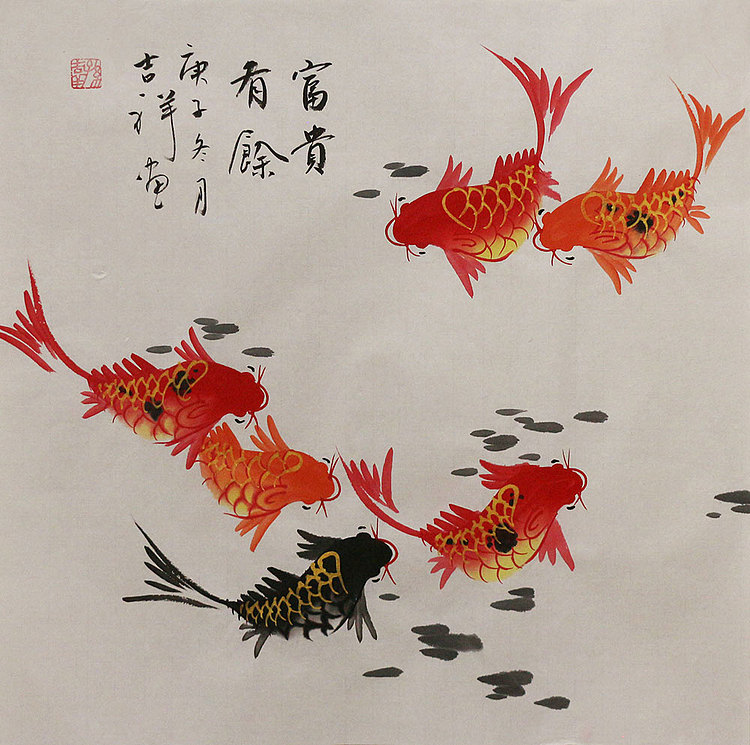 富貴
有餘
庚子冬月
吉祥画